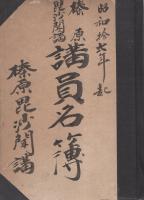 昭和拾六年記
榛原
毘沙門講
講員名簿
榛原毘沙門講